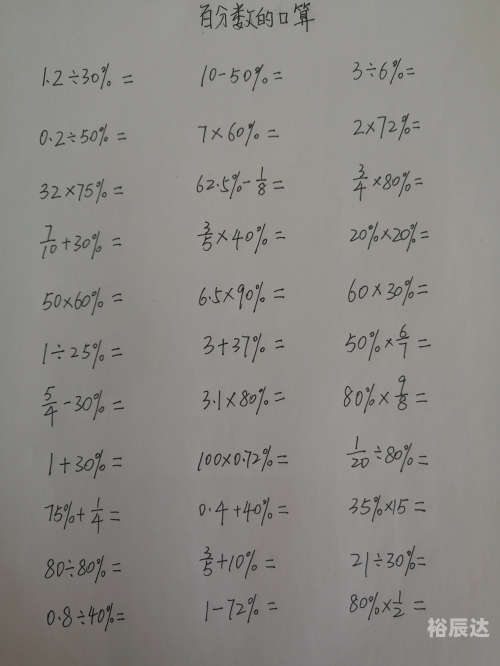 百分数的口算
1.2÷30%= 10-50%= 3÷6%=
0.2÷50%= 7×60%= 2×72%=
32×75%= 62.5%-1/8= 3/4×80%=
7/10+30%= 3/5×40%= 20%×20%=
50×60%= 6.5×90%= 60×30%=
1÷25%= 3+37%= 50%×6/7=
5/4-30%= 3.1×80%= 80%×9/8=
1+30%= 100×0.72%= 1/20÷80%=
75%+1/4= 0.4+40%= 35%×15=
80÷80%= 3/5+10%= 21÷30%=
0.8÷40%= 1-72%= 80%×1/2=
裕辰达